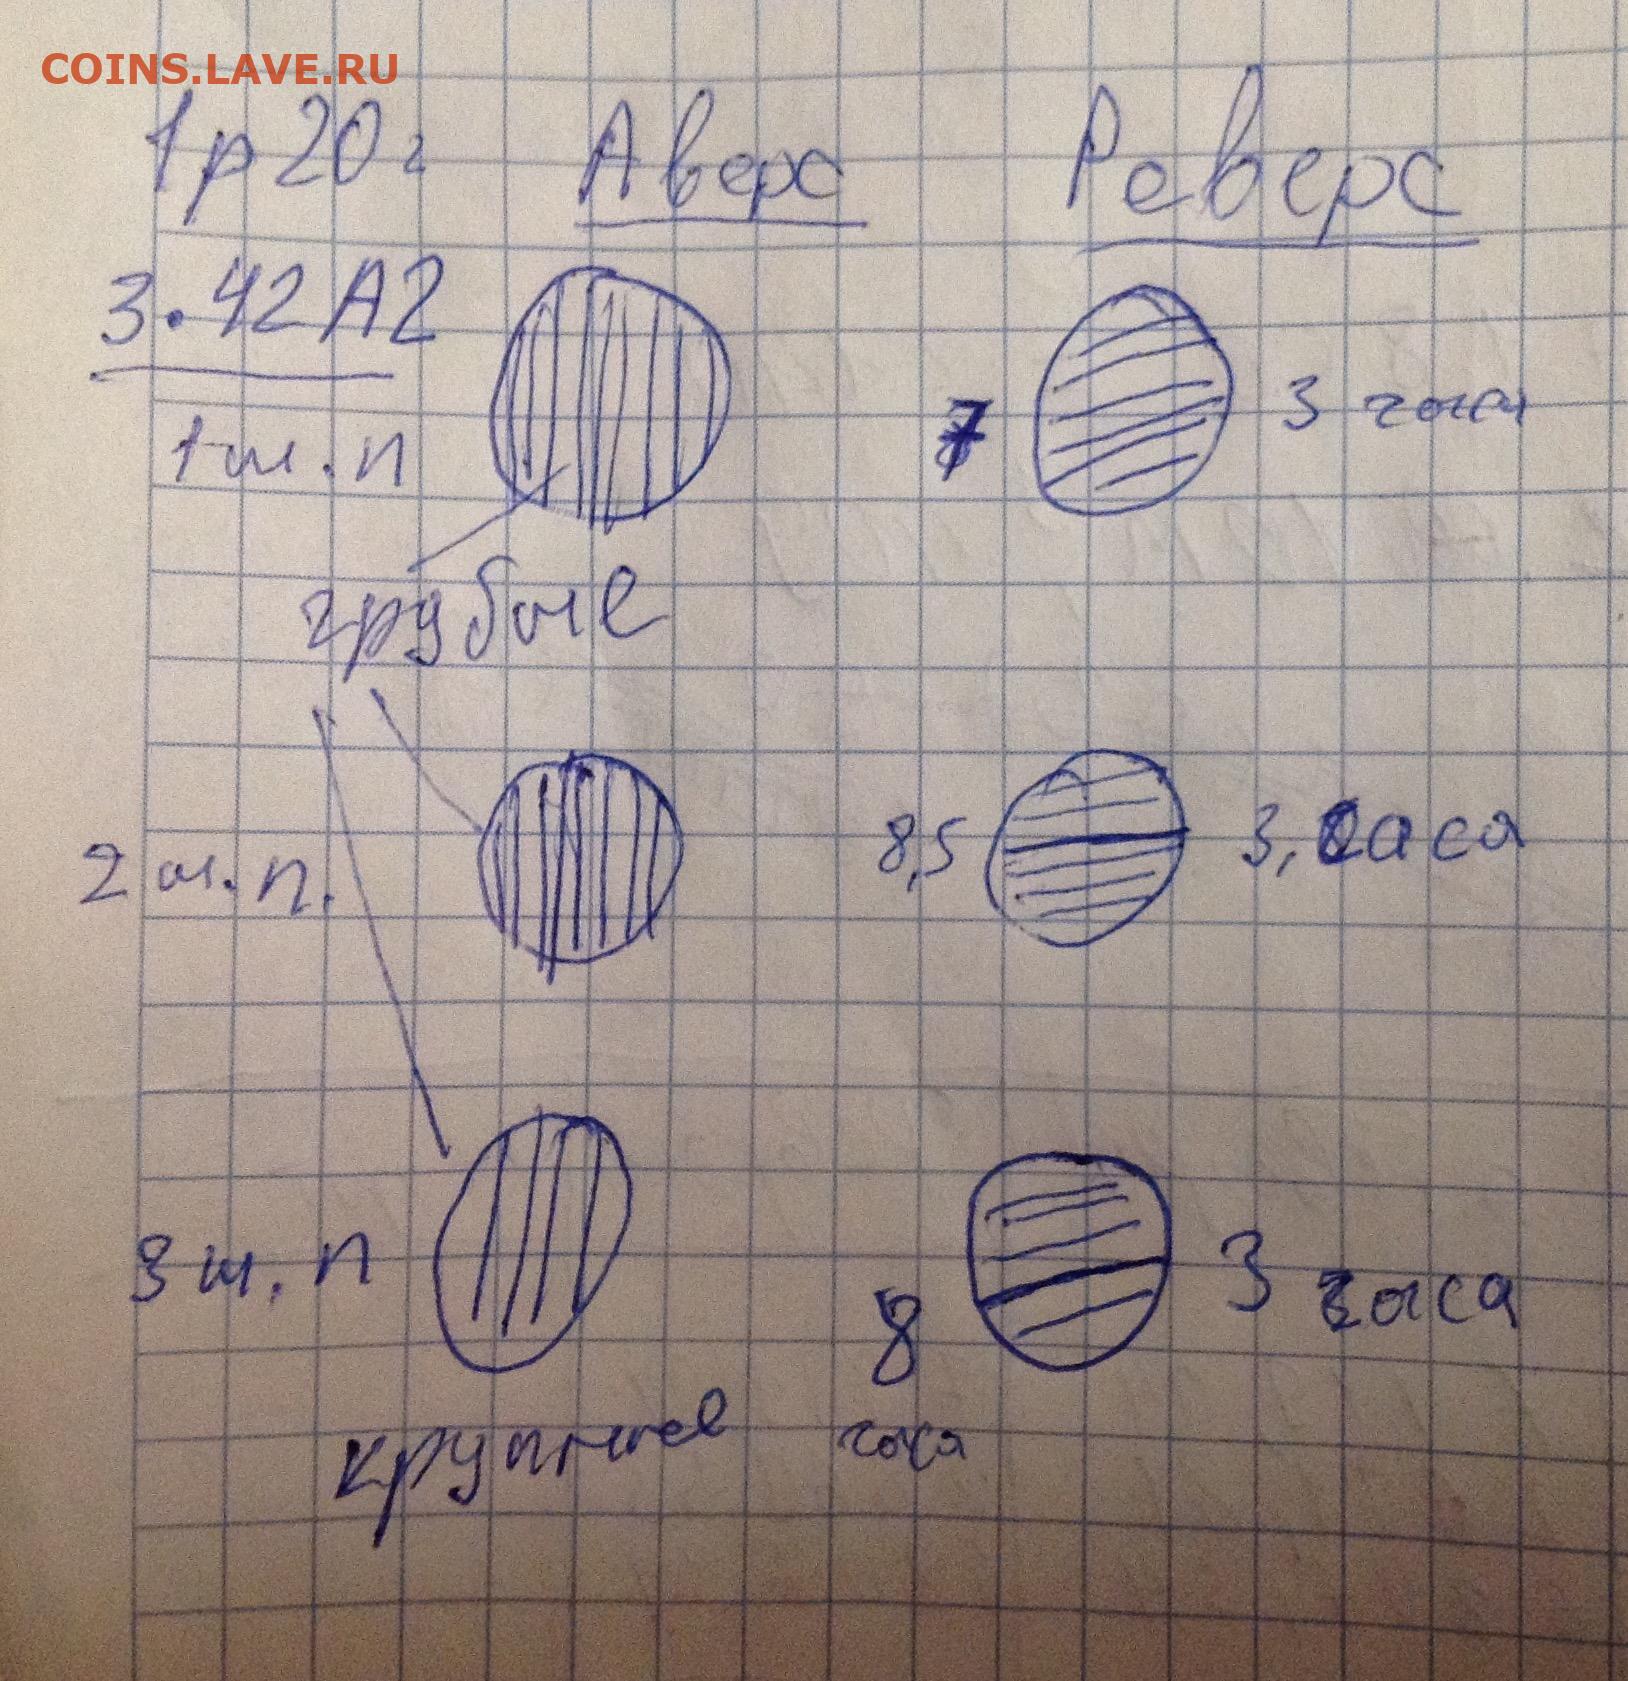 COINS.LAVE.RU
1р 20г Аверс Реверс
3.42А2
1 ш.п 7 3 часа
грубые
2 ш.п. 8,5 3, часа
3 ш.п 8 3 часа
крупные часа